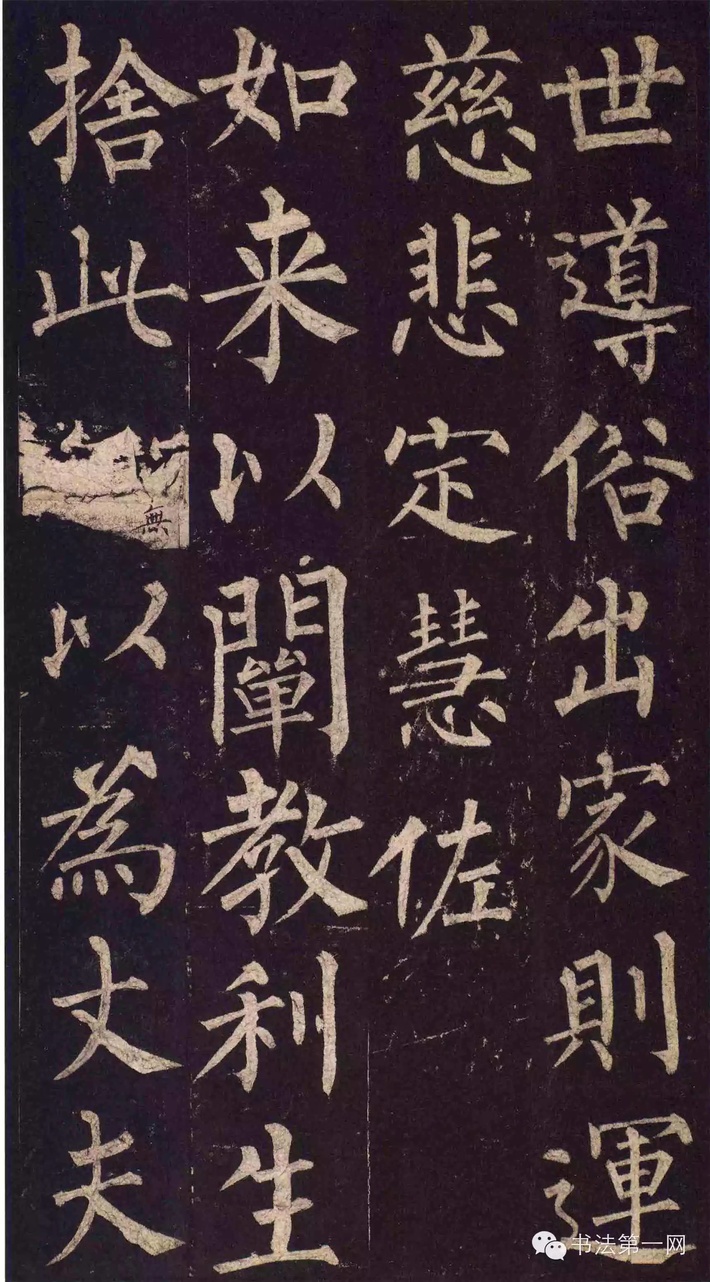 世導俗出家則運
慈悲定慧佐
如来以闡教利生
捨此無以為丈夫
书法第一网